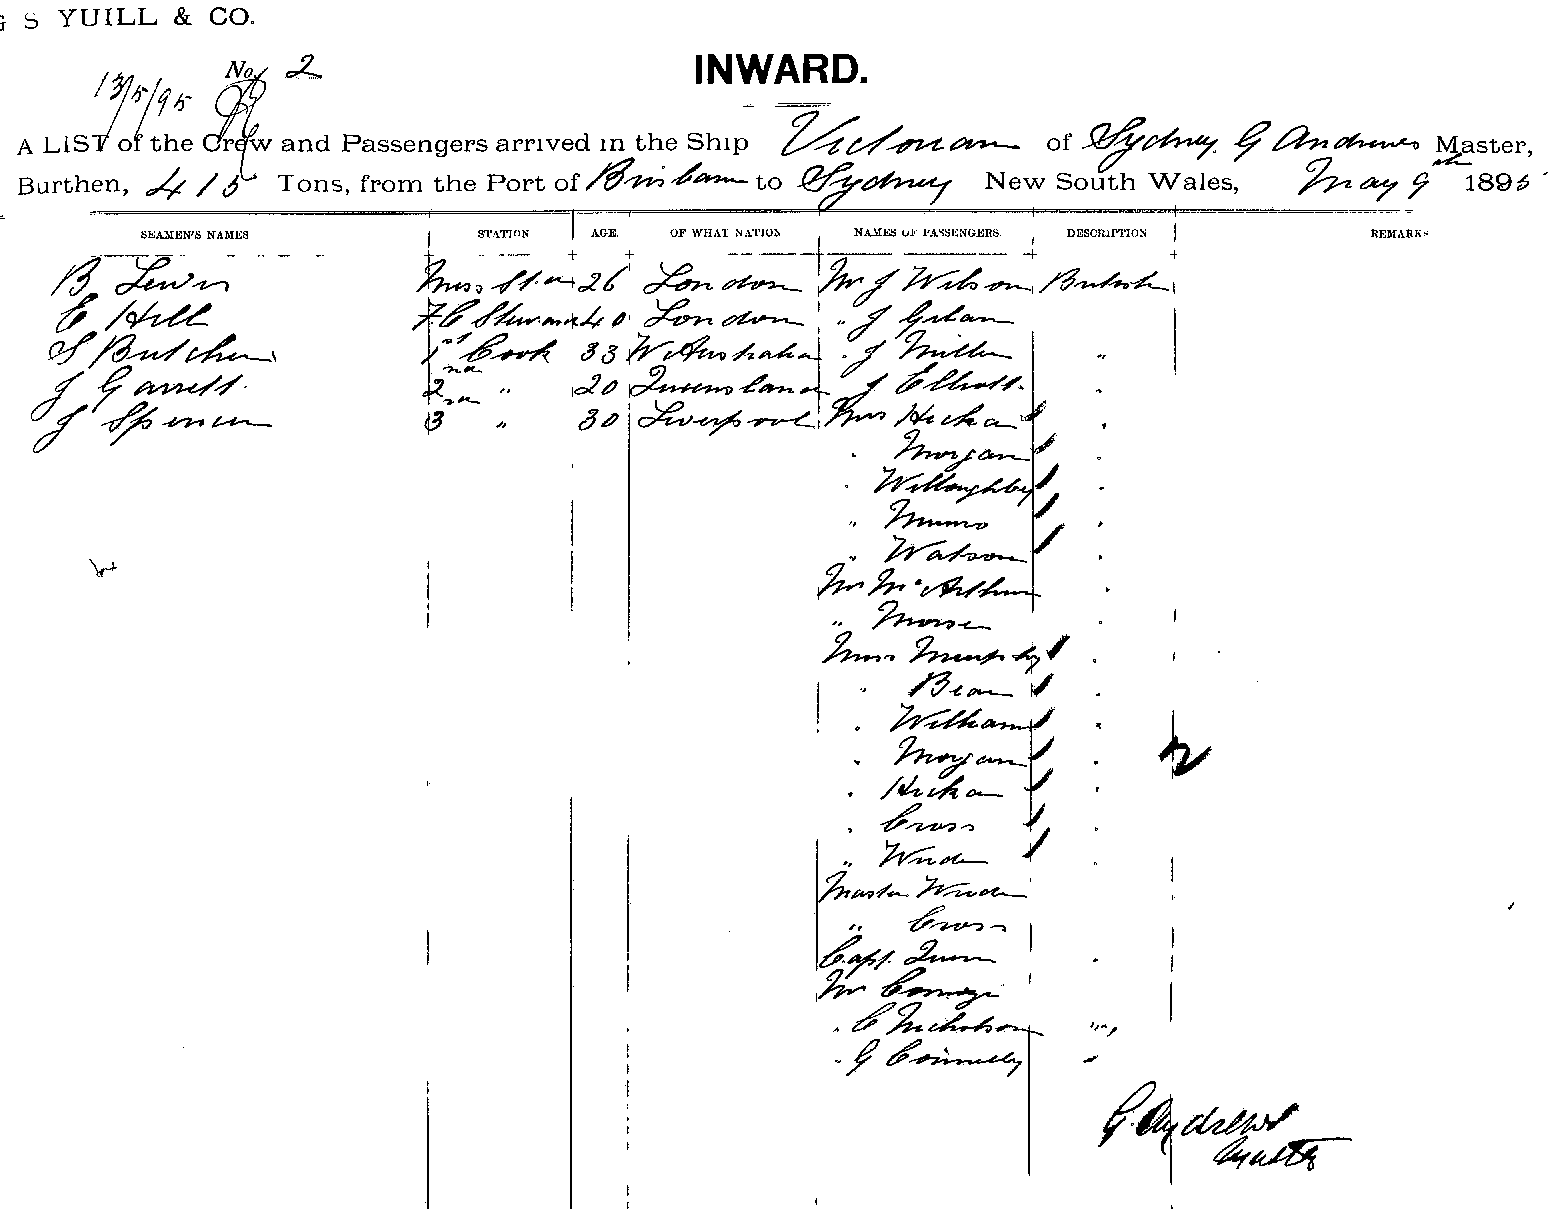 G S YUILL & CO.
No 2
13/5/95
INWARD.
A LIST of the Crew and Passengers arrived in the Ship Victorian of Sydney. G Andrews Master,
Burthen, 415 Tons, from the Port of Brisbane to Sydney New South Wales, May 9th 1895
SEAMEN'S NAMES STATION AGE. OF WHAT NATION NAMES OF PASSENGERS. DESCRIPTION REMARKS
B Lewis 26 London Mr J Wilson British
E Hill F.C Steward 40 London " J
S Butcher 1st Cook 33 W Australia " J Miller "
J Garrett 2nd " 20 Queensland J Elliott "
J Spencer 3 " 30 Liverpool Mrs "
" Morgan "
" Willoughby "
" Munro "
" Watson "
Mr McArthur "
" Morse "
Miss Murphy "
" Bean "
" Williams "
" Morgan "
" "
" Cross "
" "
Master
" Cross
Capt. "
Mr
" C Nicholson "
" G Connelly "
G. Andrews
Master